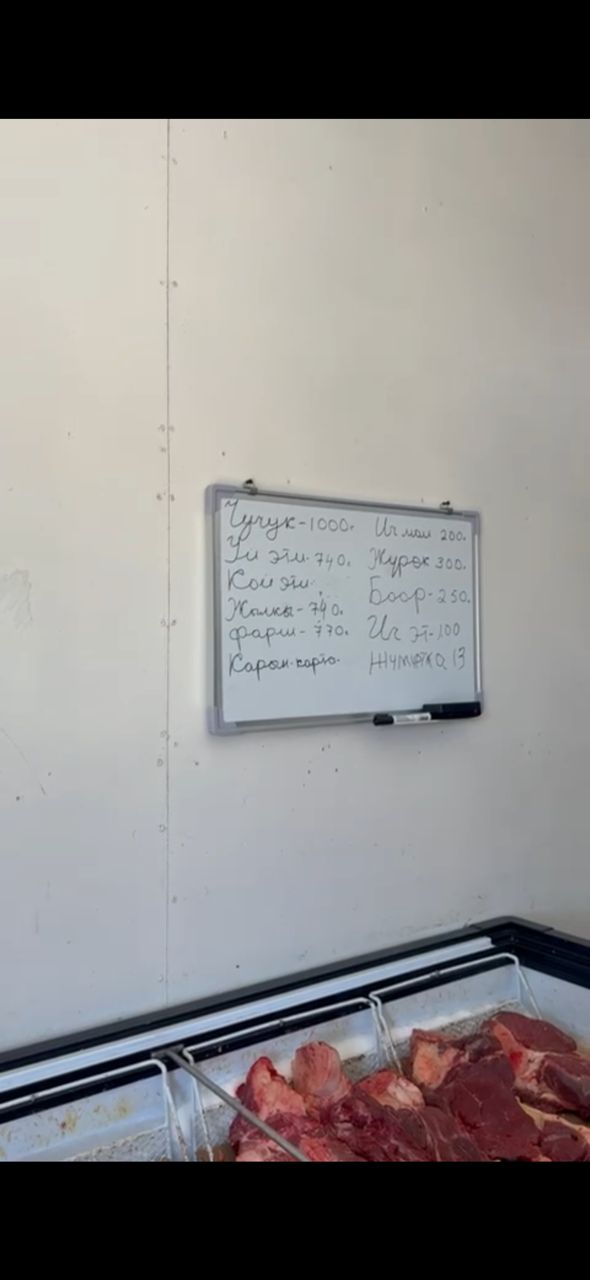 Чучук-1000.
Уй эти-740.
Кой эти-
Жылкы-740.
фарш-770.
Карын-карта-
Ич май 200.
Жүрөк 300.
Боор-250.
Ич эт-100
Жумуртка 13